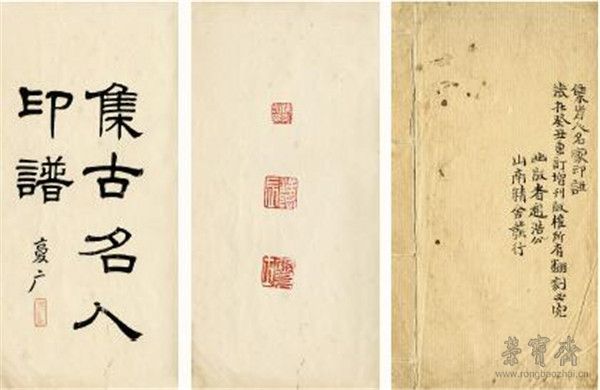 集古名人
印譜
夏广
集古人名家印譜
歲在癸丑重訂增刊版權所有翻刻必究
出版者趙浩公
山南精舍發行
荣宝斋
www.rongbaozhai.cn